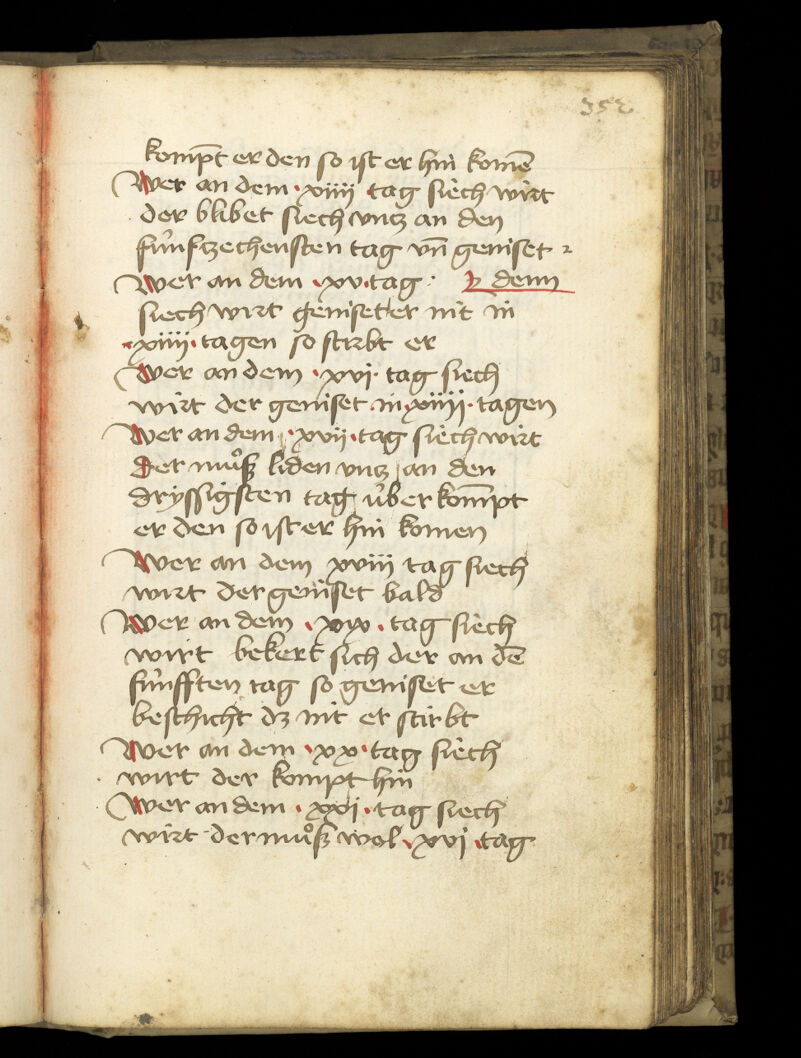 352
kompt̄ er den so ist er hin komē
Wer an dem · xiiii · tag siech wirt
der blibet siech vntz an den
fúnfzechensten tag vn̄ geniset
Wer an dem · xv · tag · denn
siech wirt geniset er nit in
· xiiii · tagen so stirbt er
Wer an dem · xvi · tag siech
wirt der geniset in · xiiii · tagen
Wer an dem · xvii · tag siech wirt
der muͦß liden vntz an den
dryssigsten tag úber kom̄pt
er den so ist er hin komen
Wer an dem xviii tag siech
wirt der geniset bald
Wer an dem · xix · tag siech
wirt bekert sich der an dē
fúnfften tag so geniset er
beschicht dz nit er stirbt
Wer an dem · xx · tag siech
wirt der kompt hin
Wer an dem · xxi · tag siech
wirt der muͦß wol · xvi · tag